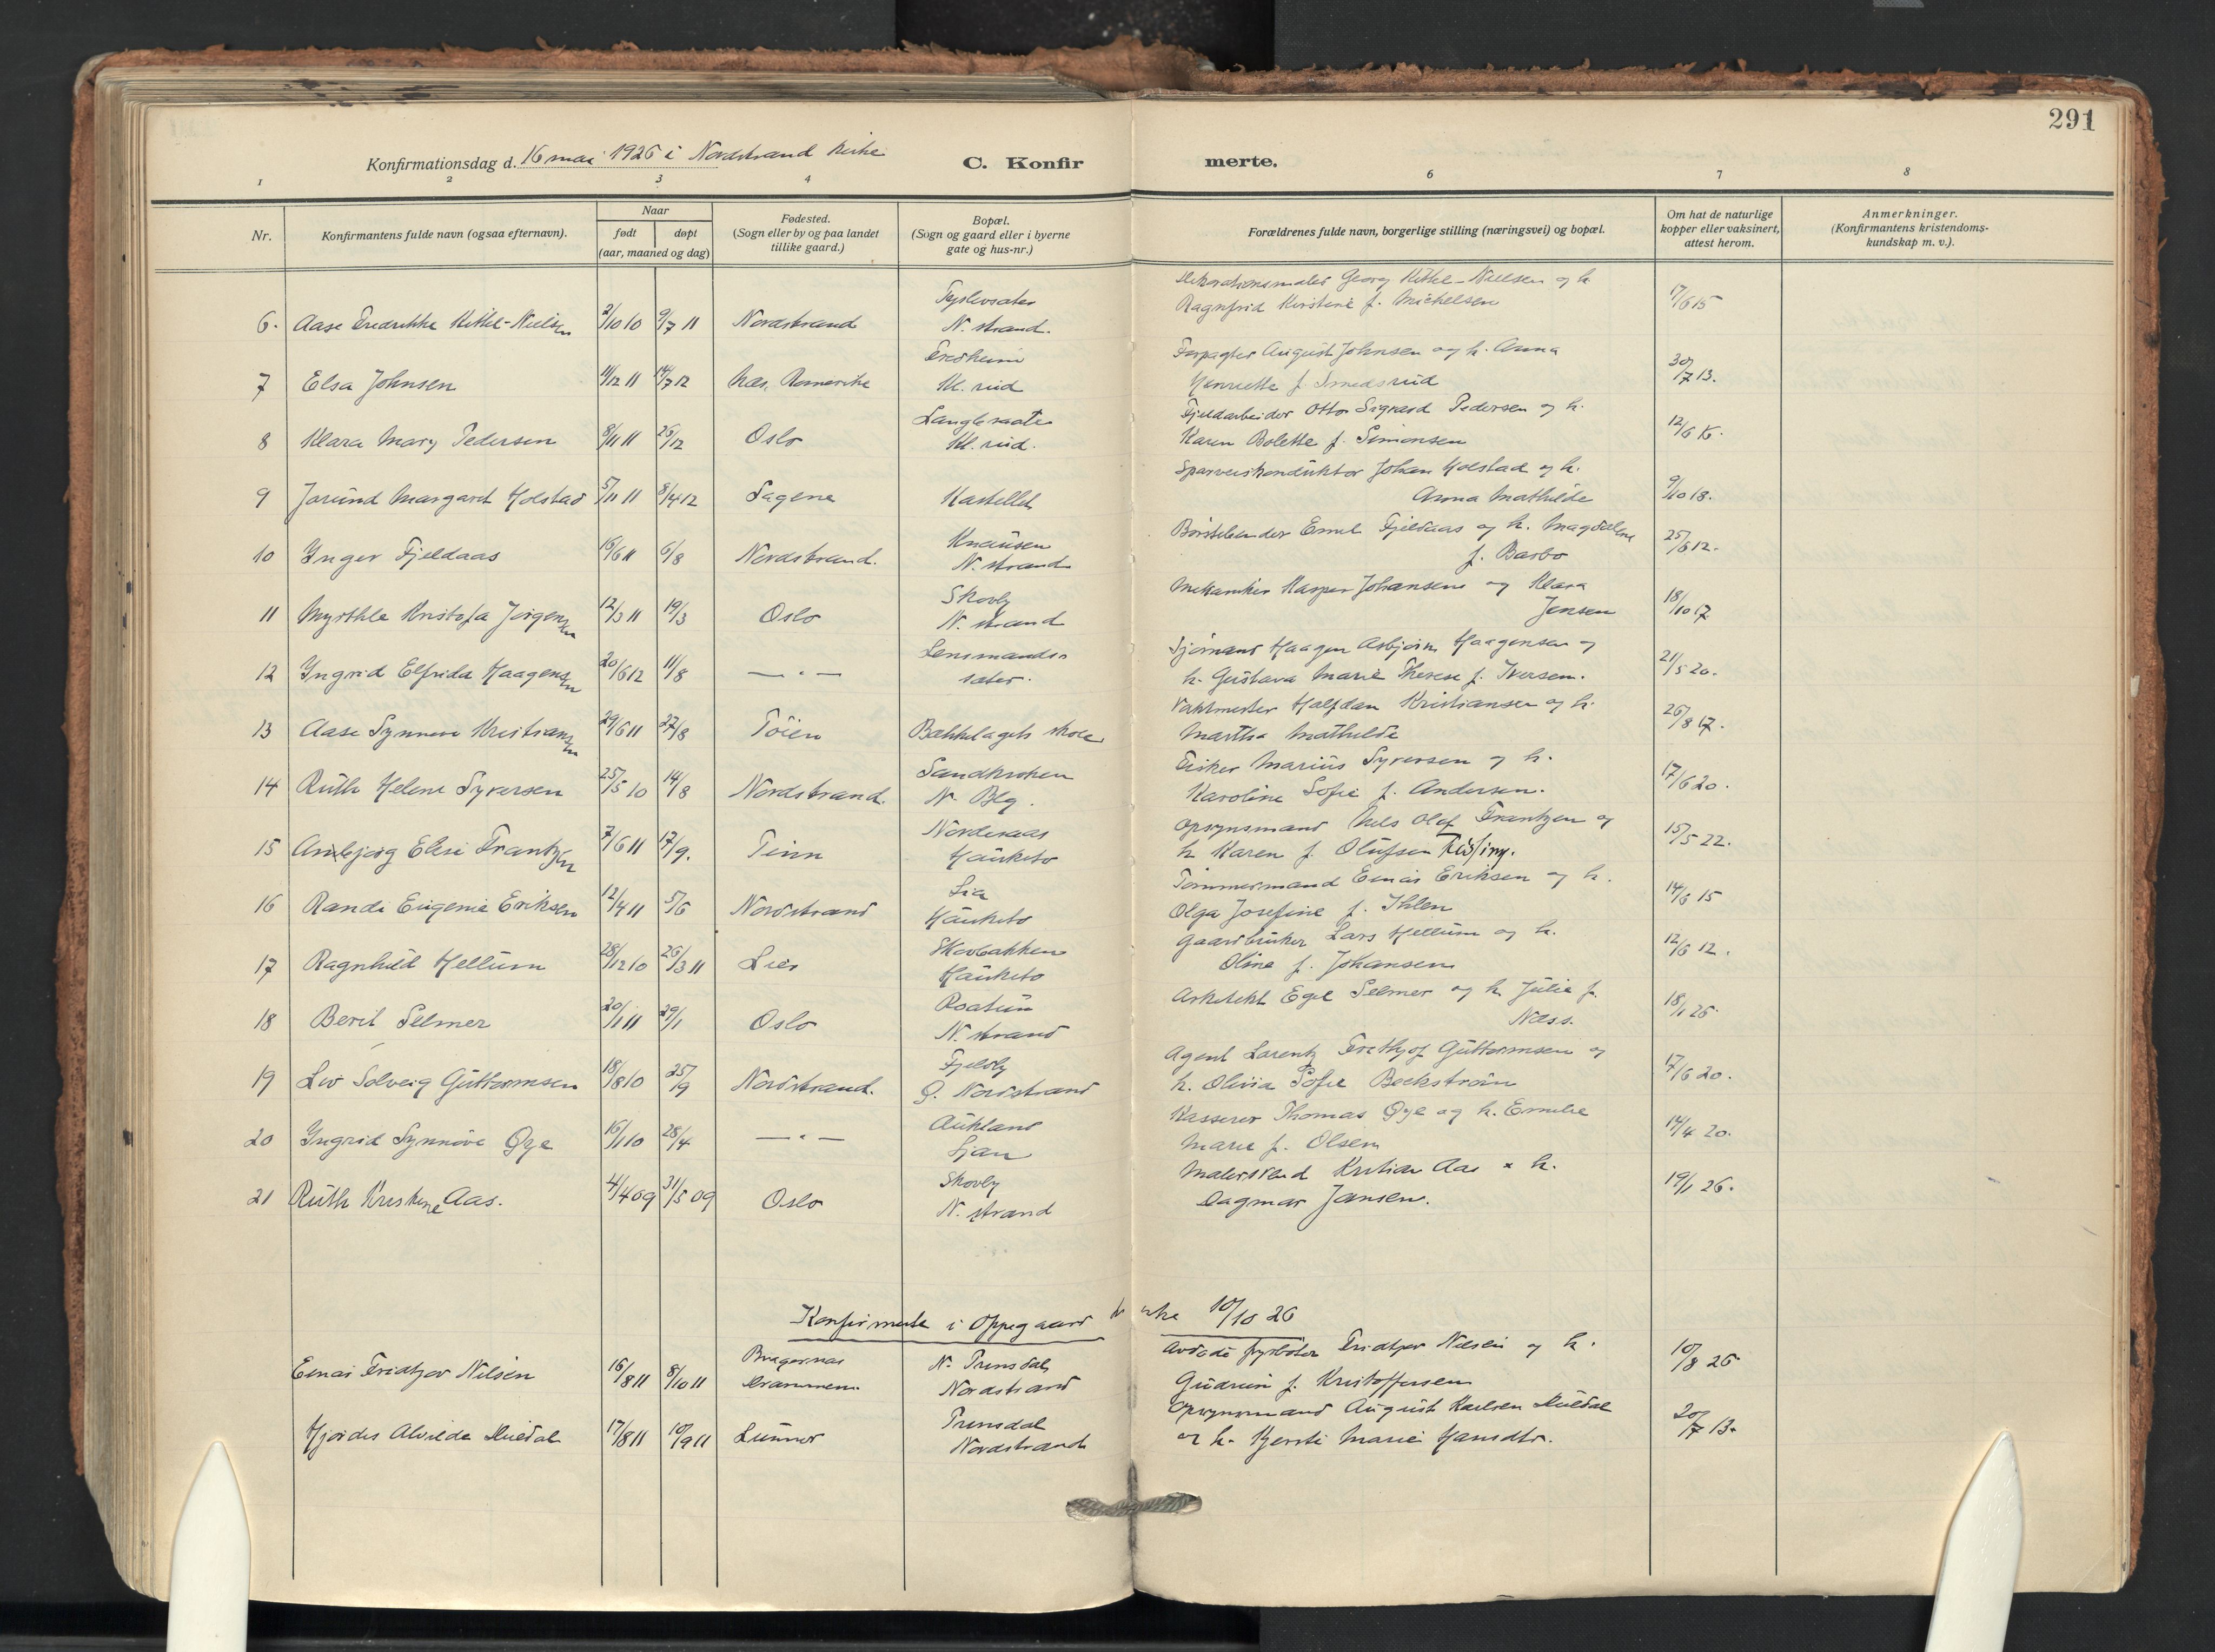 291
Konfirmationsdag d. 16 mai 1926 i Nordstrand kirke
C. Konfir merte.
1 2 3 4 6 7 8
Nr. Konfirmantens fulde navn (ogsaa efternavn). Naar født døpt (aar, maaned og dag) Fødested. (Sogn eller by og paa landet tillike gaard.) Bopæl. (Sogn og gaard eller i byerne gate og hus-nr.) Forældrenes fulde navn, borgerlige stilling (næringsvei) og bopæl. Om hat de naturlige kopper eller vaksinert, attest herom. Anmerkninger. (Konfirmantens kristendoms-kundskap m. v.).
Dekorationsmaler Georg Kittel-Nielsen og h.
6. Aase Fredrikke Kittel-Nielsen 2/10 10 9/7 11 Nordstrand N. strand. Ragnfrid Kirstine f. Michelsen 17/6 15
Fredheim Forpagter August Johnsen og h. Anna
7 Elsa Johnsen 11/12 11 14/7 12 Næs, Romerike Kl. rud Henriette f. Smedsrud 30/7 13.
Fjeldarbeider Otto Sigvard Pedersen og h.
8 Klara Mary Pedersen 8/11 11 26/12 Oslo Kl. rud. Karen Bolette f. Simonsen 12/6
Sporveiskonduktør Johan Holstad og h.
9 Jorund Margaret Holstad 5/11 11 8/4 12 Sagene Kastellet Anna Mathilde 9/10 18.
Knausen Emil Fjeldaas og h. Magdalene
10 Inger Fjeldaas 16/6 11 6/8 Nordstrand. N. strand f. Barbo 25/6 12.
Skovly Mekaniker Kasper Johansen og Klara
11 Myrthle Kristofa Jørgensen 12/3 11 19/3 Oslo N. strand Jensen 18/10 17
Lensmands- Sjømand Haagen Asbjørn Haagensen og
12 Ingrid Elfrida Haagensen 20/6 12 11/8 — " — sæter. h. Gustava Marie Therese f. Iversen. 21/5 20.
Vaktmester Halfdan Kristiansen og h.
13 Aase Synnøve Kristiansen 29/6 11 27/8 Tøien Bækkelagets skole Martha Mathilde 26/8 17.
Sandkroken Fisker Marius Syversen og h.
14 Ruth Helene Syversen 25/5 10 14/8 Nordstrand. N. Blg. Karoline Sofie f. Andersen. 17/6 20.
Norderaas Opsynsmand Nels Olaf Frantzen og
15 Elise Frantzen 7/6 11 17/9. Tinn Hauketo h Karen f. Olufsen 15/5 22.
Lia Tømmermand Einar Eriksen og h.
16 Randi Eugenie Eriksen 12/4 11 5/6 Nordstrand Hauketo Olga Josefine f. Ihlen 14/6 15
Skovbakken Gaardbruker Lars Hellum og h.
17 Ragnhild Hellum 28/12 10 26/3 11 Lier Hauketo Oline f. Johansen 12/6 12.
Roatun Arkitekt Egil Selmer og h. Julie f.
18 Berit Selmer 20/1 11 29/1 Oslo N. strand Næss. 18/1 26.
Fjeldly Agent Lorentz Fritjof Guttormsen og
19 Liv Solveig Guttormsen 18/8 10 25/9 Nordstrand. Ø. Nordstrand h. Olivia Sofie Beckstrøm 17/6 20.
Aukland Kasserer Thomas Øye og h. Emilie
20 Ingrid Synnøve Øye 16/1 10 28/4 — " — Ljan Marie f. Olsen 14/4 20.
Skovly Malersvend Kristian Aas & h.
21 Ruth Kristine Aas. 4/4 09 31/5 09 Oslo N. strand Dagmar Jansen. 19/1 26.
Konfirmerte i Oppegaard kirke 10/10 26
Bragernæs N. Prinsdal Avdøde fyrbøter Fridtjov Nilsen og h.
Einar Fridtjov Nilsen 16/8 11 8/10 11 Drammen. Nordstrand Gudrun f. Kristoffersen 10/8 26
Prinsdal Opsynsmand August Karlsen Huldal
Hjørdis Alvilde Huldal 17/8 11 10/9 11 Lunner Nordstrand og h. Kjersti Marie Hansdtr. 20/7 13.